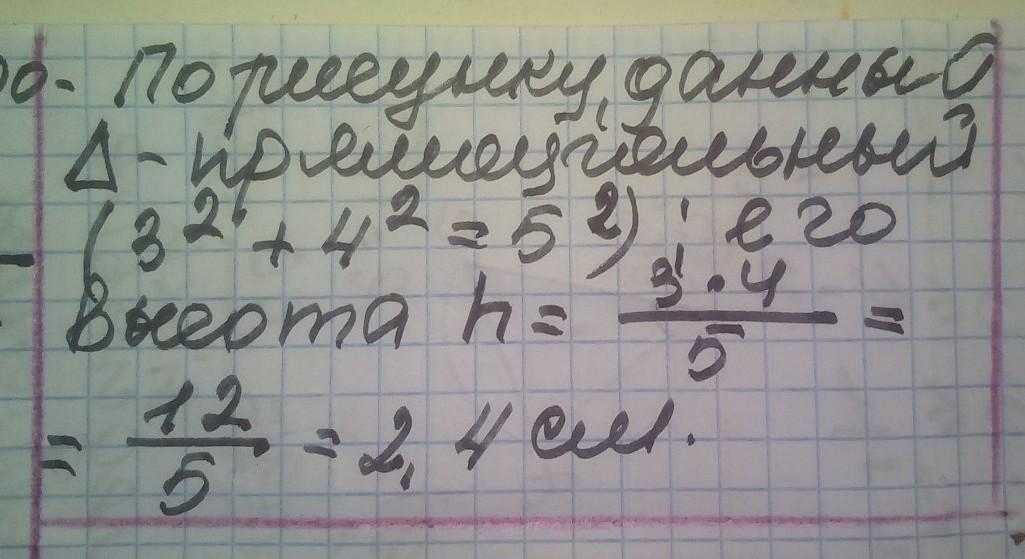 По рисунку, данный
Δ - прямоугольный
(3² + 4² = 5²); его
высота h = 3·4/5 =
= 12/5 = 2,4 см.